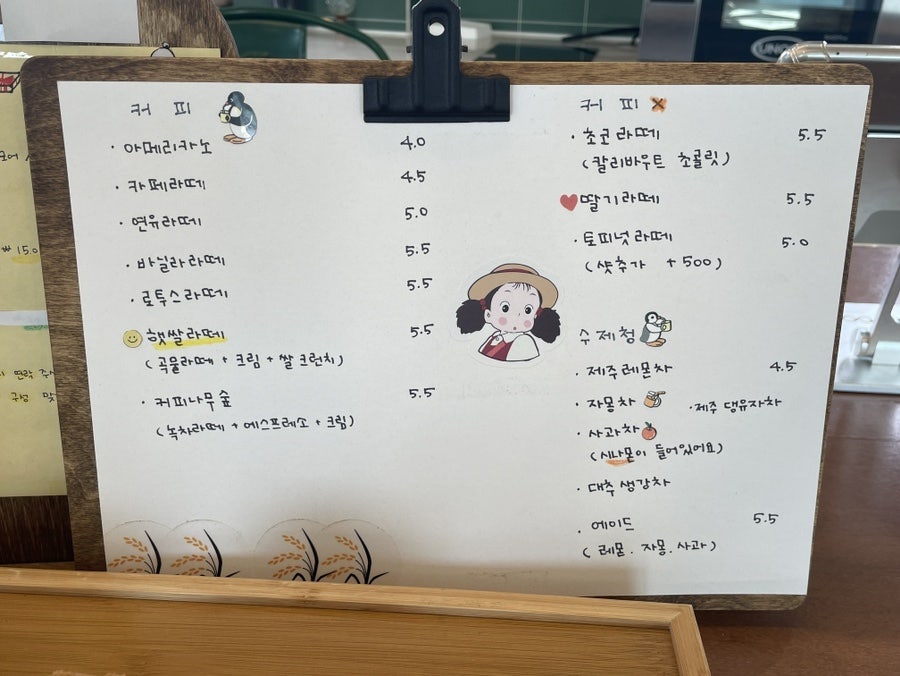 커 피
· 아메리카노 4.0
· 카페라떼 4.5
· 연유라떼 5.0
· 바닐라라떼 5.5
· 로투스라떼 5.5
햇쌀라떼 5.5
(곡물라떼 + 크림 + 쌀 크런치)
· 커피나무숲 5.5
(녹차라떼 + 에스프레소 + 크림)
커 피 x
· 초코라떼 5.5
(칼리바우트 초콜릿)
딸기라떼 5.5
· 토피넛라떼 5.0
(샷추가 +500)
수제청
· 제주레몬차 4.5
· 자몽차 · 제주 댕유자차
· 사과차
(시나몬이 들어있어요)
· 대추생강차
· 에이드 5.5
(레몬. 자몽. 사과)
15.0
연락 주
구성 맞